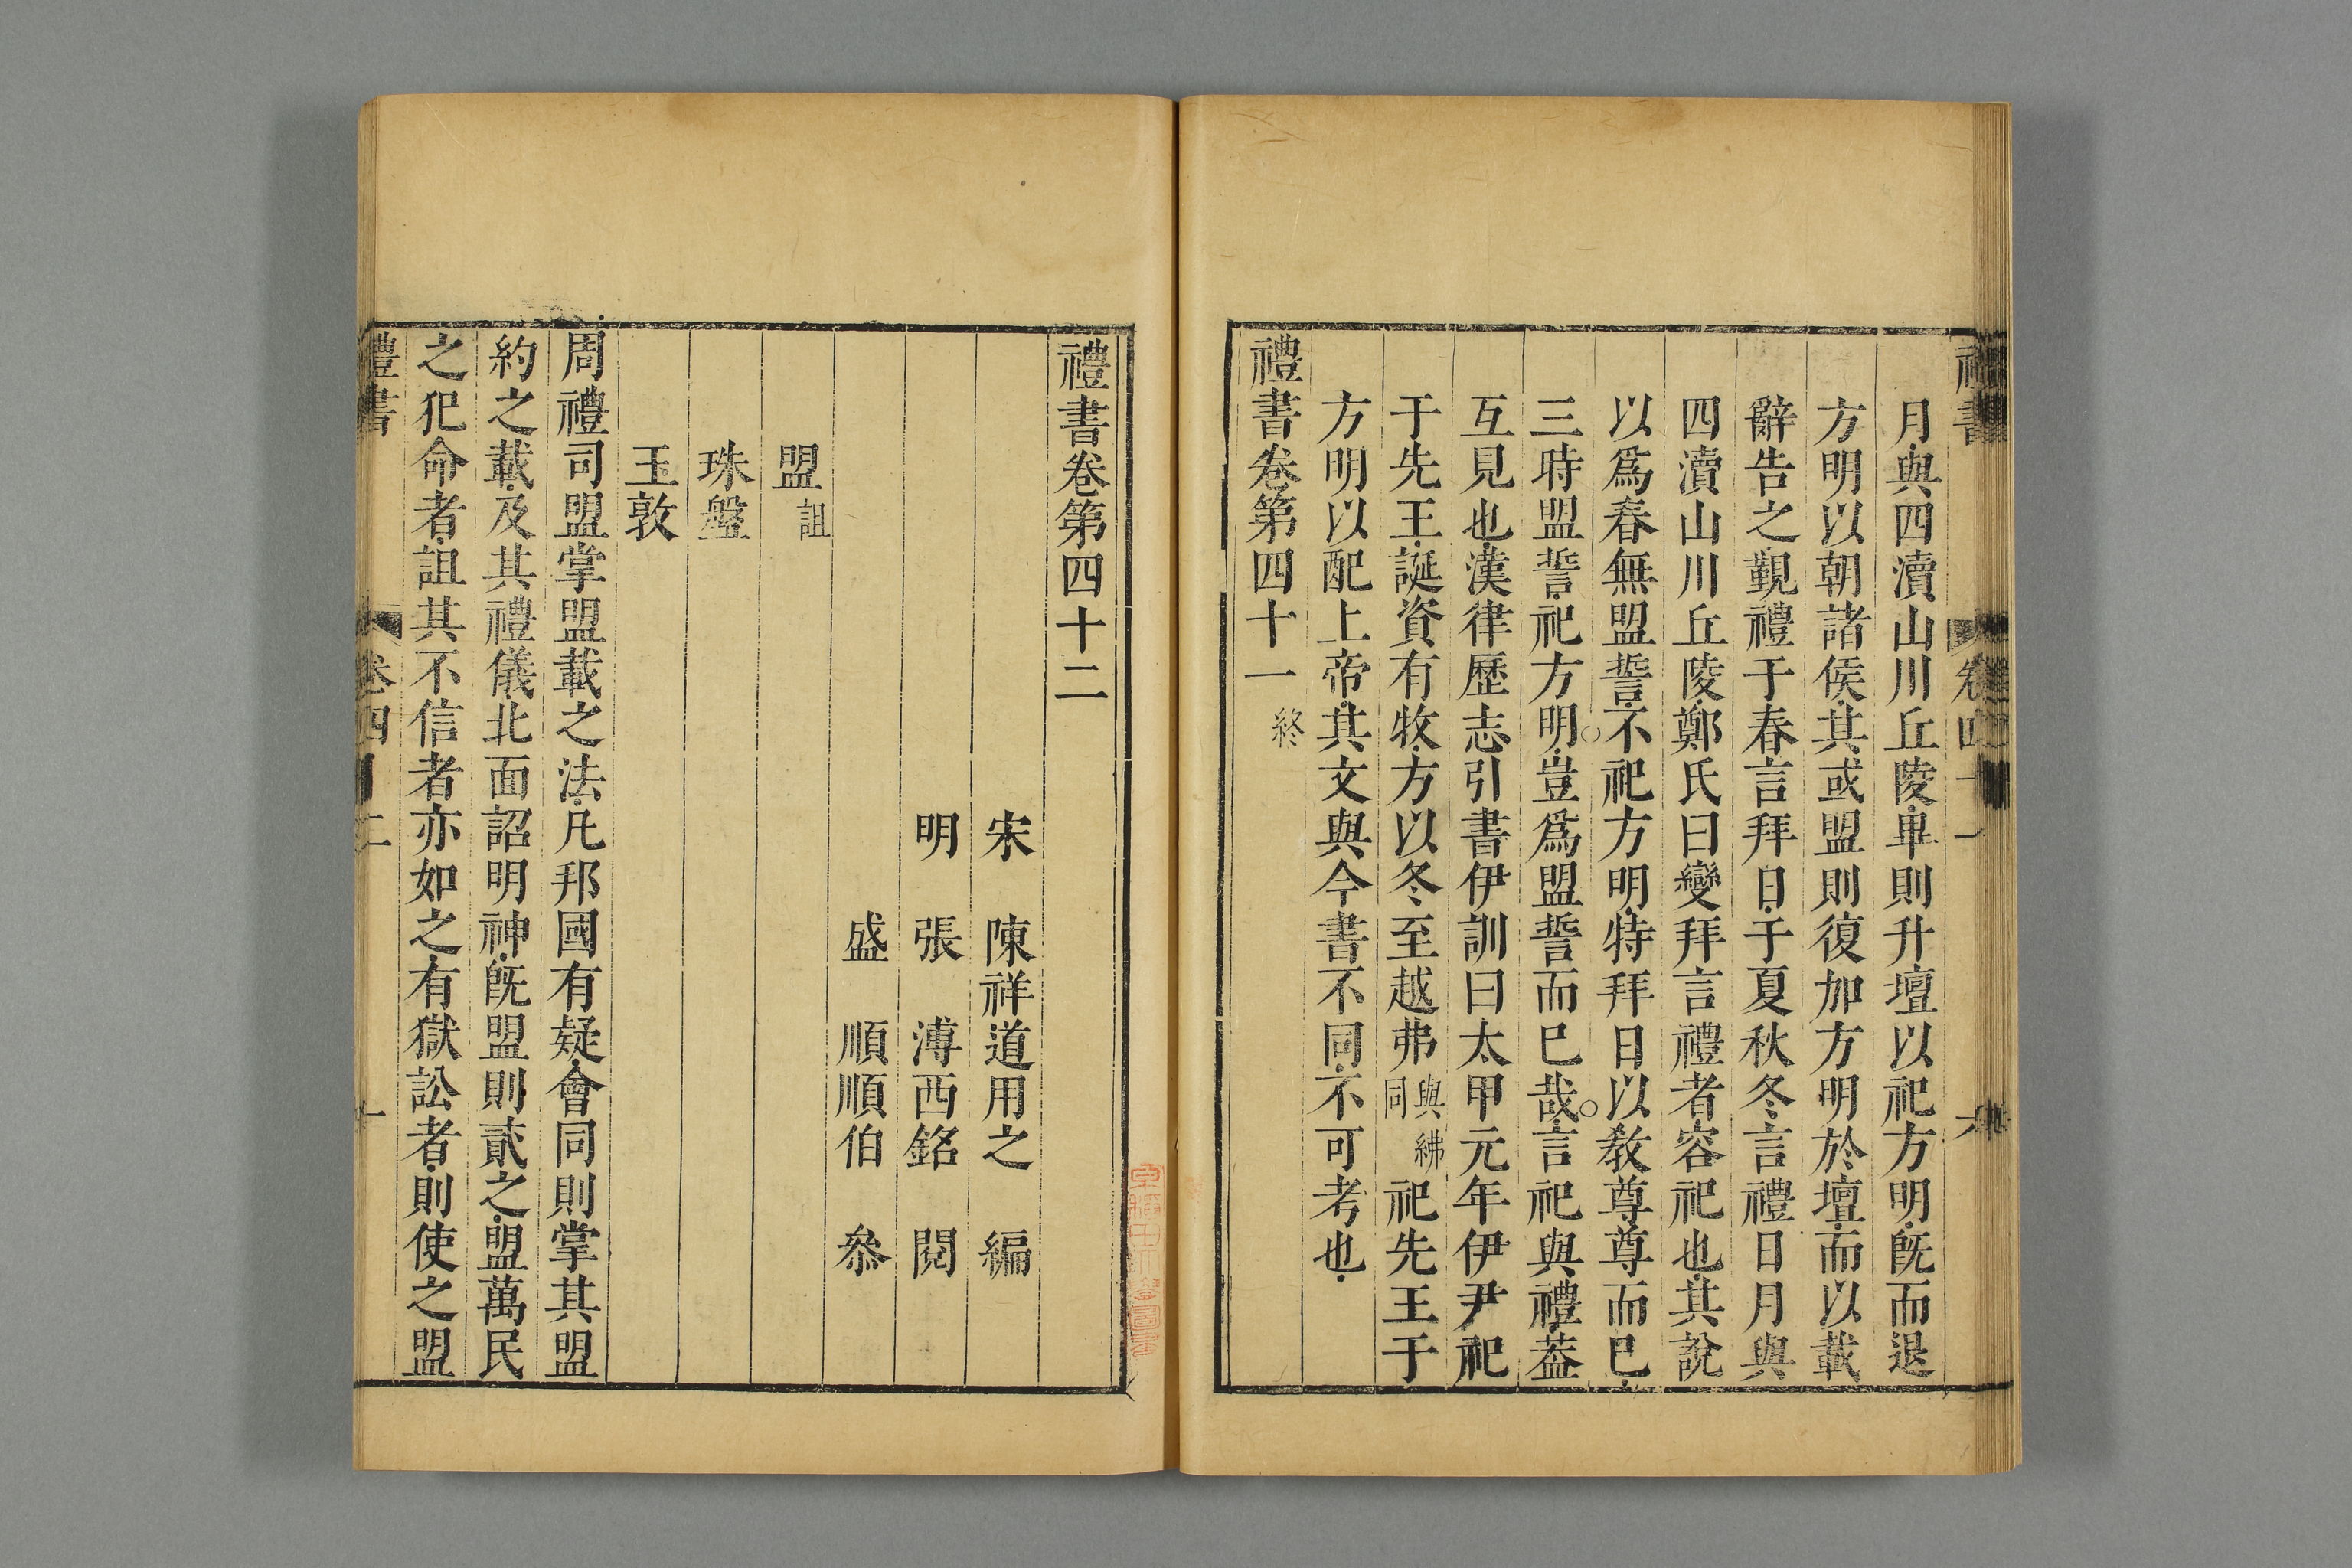 月與四瀆山川丘陵畢則升壇以祀方明旣而退
方明以朝諸侯其或盟則復加方明於壇而以載
辭告之覲禮于春言拜日于夏秋冬言禮日月與
四瀆山川丘陵鄭氏曰變拜言禮者容祀也其說
以爲春無盟誓不祀方明特拜日以敎尊尊而已
三時盟誓祀方明豈爲盟誓而已哉言祀與禮葢
互見也漢律歷志引書伊訓曰太甲元年伊尹祀
于先王誕資有牧方以冬至越茀與紼同祀先王于
方明以配上帝其文與今書不同不可考也
禮書卷第四十一 終
禮書卷第四十二
宋 陳祥道用之 編
明 張 溥西銘 閱
盛 順順伯 叅
盟 詛
珠盤
玉敦
周禮司盟掌盟載之法凡邦國有疑會同則掌其盟
約之載及其禮儀北面詔明神旣盟則貳之盟萬民
之犯命者詛其不信者亦如之有獄訟者則使之盟
禮書 卷四十二 一